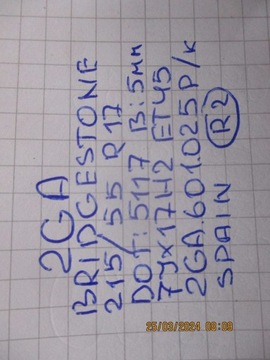 2GA
BRIDGESTONE
215/55 R17
DOT:5117 B:5мм
7Jx17H2 ET45
2GA.601.025 P/K
SPAIN R2
25/03/2024 08:09